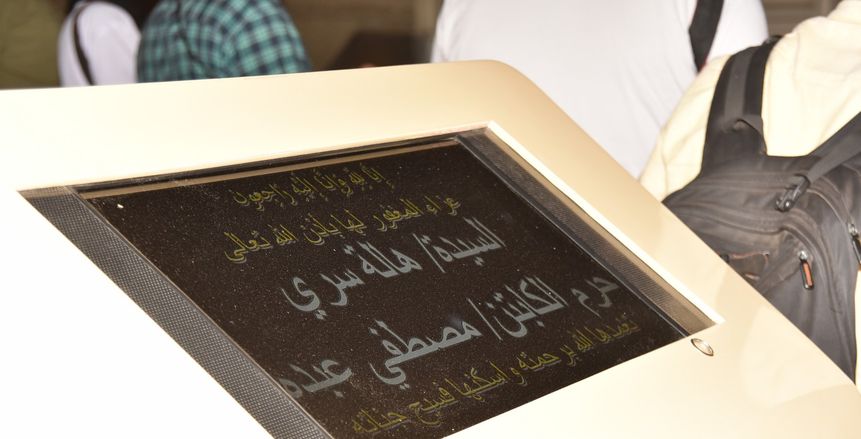 إنا لله وإنا إليه راجعون
عزاء المغفور لها بإذن الله تعالى
السيدة/ هالة سري
حرم الكابتن/ مصطفي عبده
تغمدها الله برحمته و اسكنها فسيح جناته